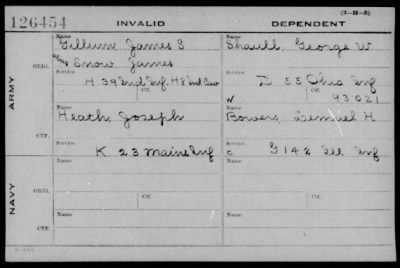 (3-11-3)
126454 INVALID DEPENDENT
Name Name
Gillum James S Shaull, George W
alias Snow James
ORIG. Service Service
H 39 Ind Inf. H 8 Ind Cav D 55 Ohio Inf
ARMY
Ctf. W 93021
Name Name
Heath, Joseph Bowers, Lemuel H
CTF. Service Service
K 23 Maine Inf C G 142 Ill Inf
Name Name
ORIG. Service Service
NAVY
Ctf. Ctf.
Name Name
CTF. Service Service